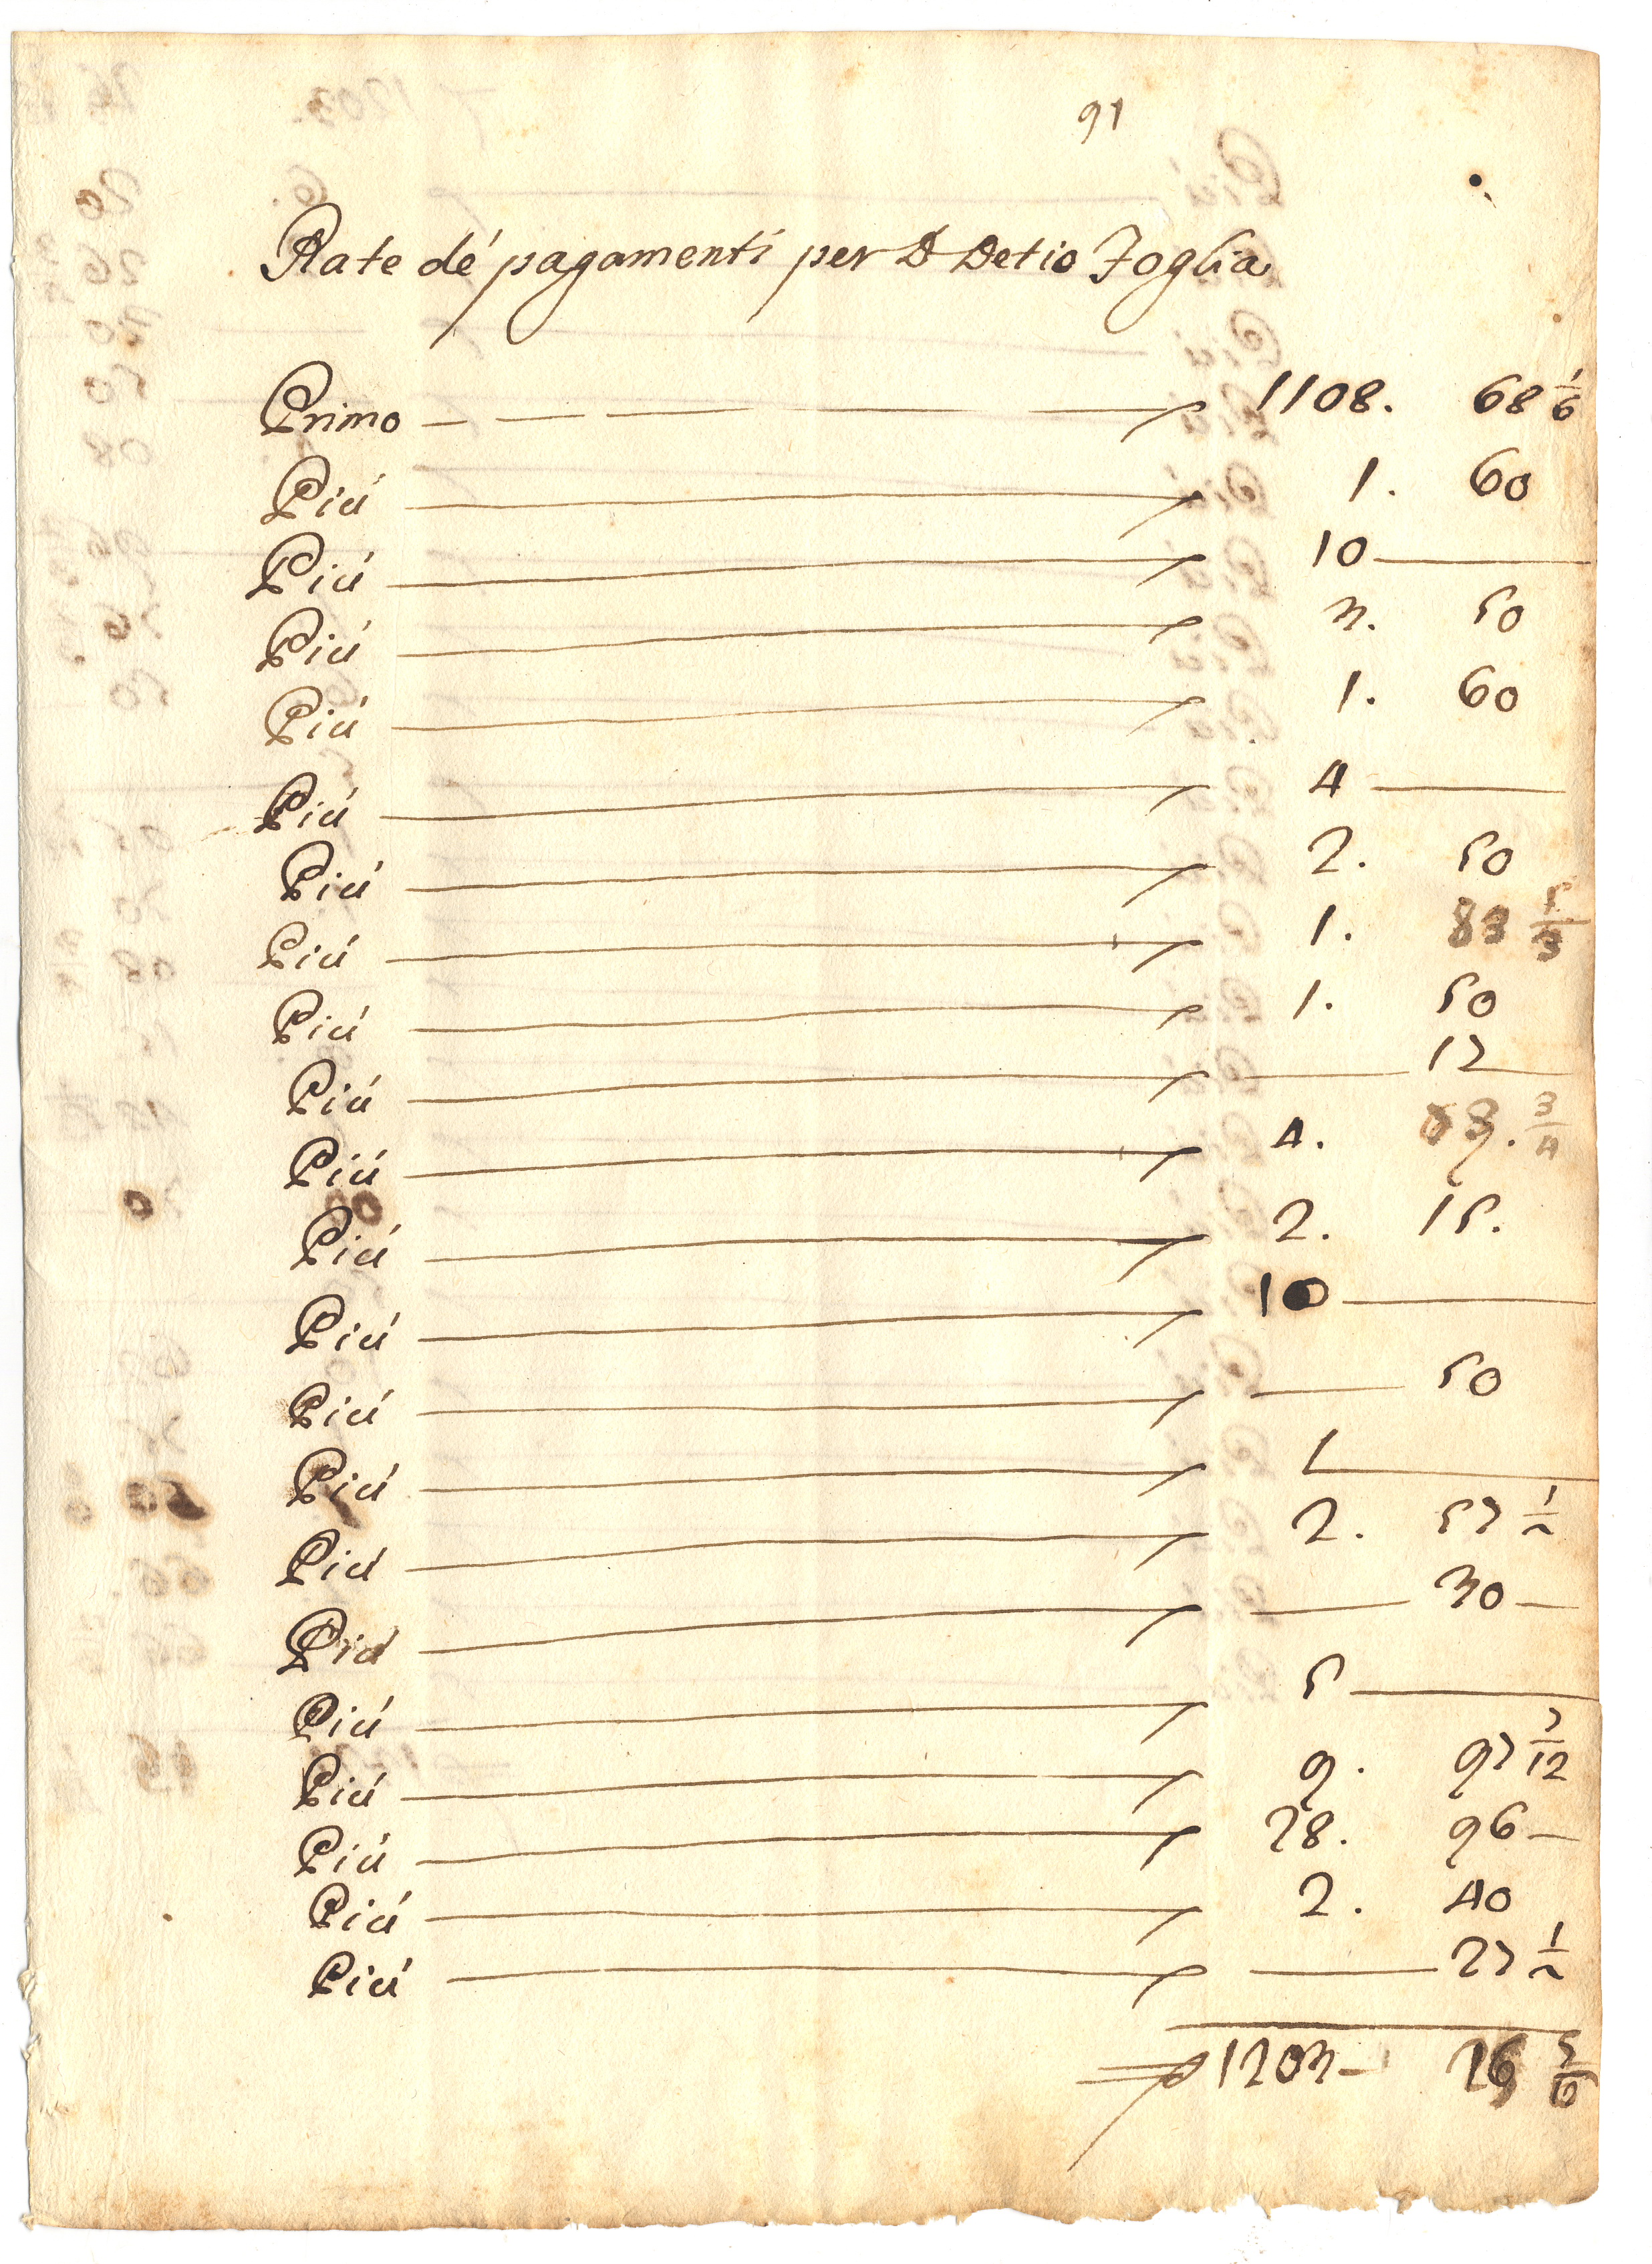 91
Rate dé pagamenti per D Detio Foglia
Primo 1108. 68 1/6
Piú 1. 60
Piú 10
Piú 3. 50
Piú 1. 60
Piú 4
Piú 2. 50
Piú 1. 83
Piú 1. 50
Piú 17
Piú 4. 3/4
Piú 2. 15.
Piú 10
Piú 50
Piú 1
Piú 2. 57 1/2
Piú 30
Piú 5
Piú 9. 97 7/12
Piú 28. 96
Piú 2. 40
Piú 27 1/2
1203 26